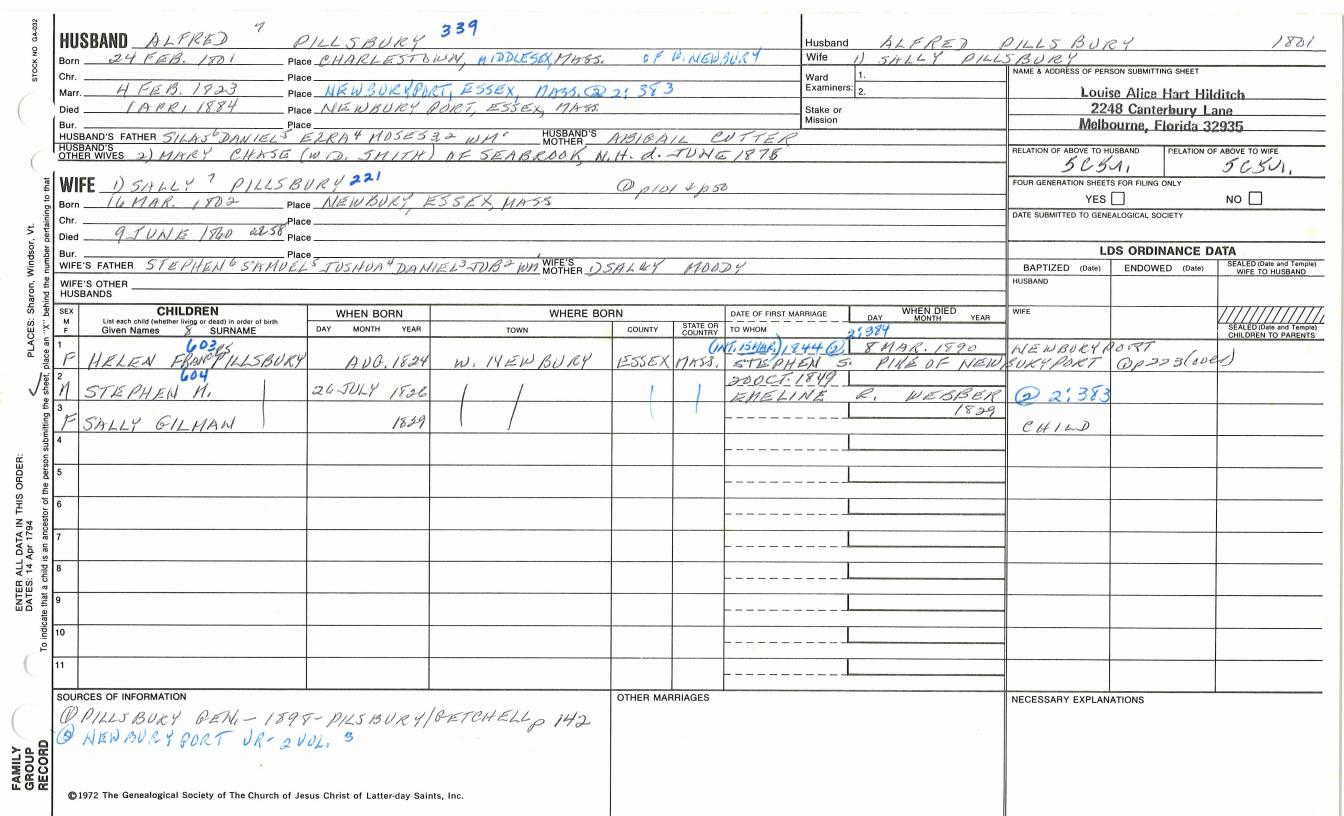 STOCK NO. GA-032
HUSBAND ALFRED 7 PILLSBURY 339
Born 24 FEB. 1801 Place CHARLESTOWN, MIDDLESEX, MASS. OF W. NEWBURY
Chr. Place
Marr. 4 FEB. 1823 Place NEWBURYPORT, ESSEX, MASS. @ 2:383
Died 1 APR, 1884 Place NEWBURY PORT, ESSEX, MASS.
Bur. Place
HUSBAND'S FATHER SILAS6 DANIEL5 EZRA4 MOSES3,2 WM HUSBAND'S MOTHER ABIGAIL CUTTER
HUSBAND'S OTHER WIVES 2) MARY CHASE (WD. SMITH) OF SEABROOK, N.H. d. JUNE 1878
WIFE 1) SALLY 7 PILLSBURY 221 @ p101 & p50
Born 16 MAR. 1802 Place NEWBURY, ESSEX, MASS
Chr. Place
Died 9 JUNE 1860 ae 58 Place
Bur. Place
WIFE'S FATHER STEPHEN6 SAMUEL5 JOSHUA4 DANIEL3 JOB2 WM WIFE'S MOTHER 1) SALLY MOODY
WIFE'S OTHER HUSBANDS
Husband ALFRED PILLSBURY 1801
Wife 1) SALLY PILLSBURY
Ward Examiners: 1. 2.
Stake or Mission
NAME & ADDRESS OF PERSON SUBMITTING SHEET
Louise Alice Hart Hilditch
2248 Canterbury Lane
Melbourne, Florida 32935
RELATION OF ABOVE TO HUSBAND RELATION OF ABOVE TO WIFE
5C5M. 5C5M.
FOUR GENERATION SHEETS FOR FILING ONLY
YES NO
DATE SUBMITTED TO GENEALOGICAL SOCIETY
LDS ORDINANCE DATA
BAPTIZED (Date) ENDOWED (Date) SEALED (Date and Temple) WIFE TO HUSBAND
HUSBAND
WIFE
SEALED (Date and Temple) CHILDREN TO PARENTS
SEX M F CHILDREN List each child (whether living or dead) in order of birth Given Names 8 SURNAME
WHEN BORN DAY MONTH YEAR
WHERE BORN TOWN COUNTY STATE OR COUNTRY
DATE OF FIRST MARRIAGE TO WHOM
WHEN DIED DAY MONTH YEAR
1 F HELEN FRANCES PILLSBURY 603 AUG. 1824 W. NEWBURY ESSEX MASS. (INT. 15 MAR.) 1844 @ 2:384 8 MAR. 1890 NEWBURYPORT
STEPHEN S. PIKE OF NEWBURYPORT @p223 (over)
2 M STEPHEN M. 604 26 JULY 1826 20 OCT. 1849
EMELINE R. WEBBER @ 2:383
3 F SALLY GILMAN 1829 1829 CHILD
4
5
6
7
8
9
10
11
SOURCES OF INFORMATION
① PILLSBURY GEN. - 1898 - PILSBURY/GETCHELL p 142
@ NEWBURYPORT VR - 2 VOL. 3
OTHER MARRIAGES
NECESSARY EXPLANATIONS
©1972 The Genealogical Society of The Church of Jesus Christ of Latter-day Saints, Inc.
PLACES: Sharon, Windsor, Vt.
To indicate that a child is an ancestor of the person submitting the sheet, place an "X" behind the number pertaining to that
ENTER ALL DATA IN THIS ORDER:
DATES: 14 Apr 1794
FAMILY GROUP RECORD